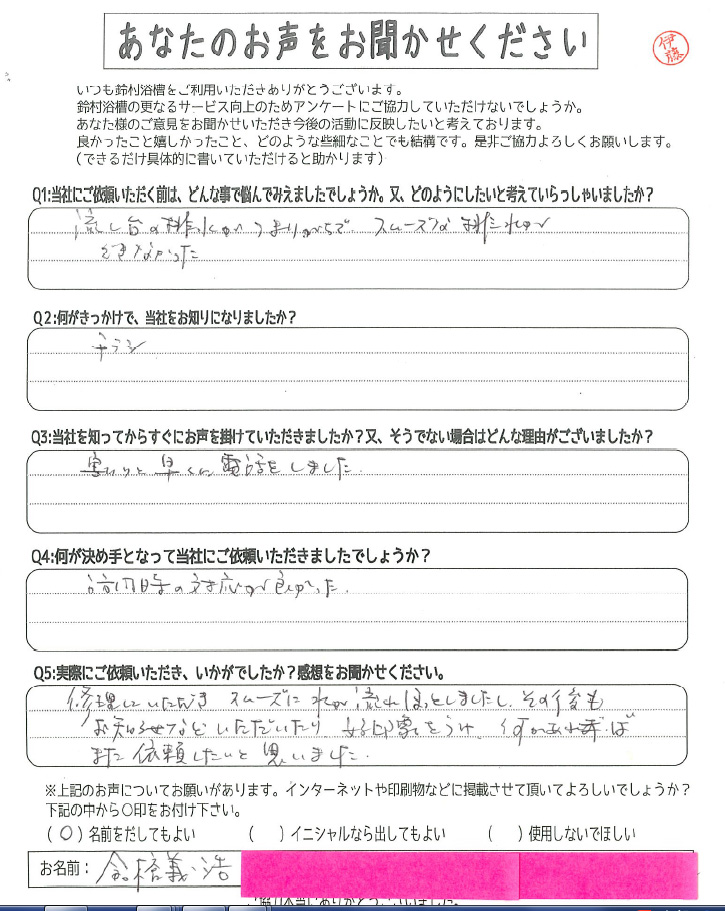 あなたのお声をお聞かせください
伊藤
いつも鈴村浴槽をご利用いただきありがとうございます。
鈴村浴槽の更なるサービス向上のためアンケートにご協力していただけないでしょうか。
あなた様のご意見をお聞かせいただき今後の活動に反映したいと考えております。
良かったこと嬉しかったこと、どのような些細なことでも結構です。是非ご協力よろしくお願いします。
(できるだけ具体的に書いていただけると助かります)
Q1:当社にご依頼いただく前は、どんな事で悩んでみえましたでしょうか。又、どのようにしたいと考えていらっしゃいましたか?
流し台の排水がつまりがちで、スムーズな排水が
できなかった
Q2:何がきっかけで、当社をお知りになりましたか?
チラシ
Q3:当社を知ってからすぐにお声を掛けていただきましたか?又、そうでない場合はどんな理由がございましたか?
割りと早くに電話をしました.
Q4:何が決め手となって当社にご依頼いただきましたでしょうか?
訪問時の対応が良かった.
Q5:実際にご依頼いただき、いかがでしたか?感想をお聞かせください。
修理していただき スムーズに水が流れほっとしましたし、その後も
お知らせなどいただいたり、好印象をうけ、何かあれば
また依頼したいと思いました.
※上記のお声についてお願いがあります。インターネットや印刷物などに掲載させて頂いてよろしいでしょうか?
下記の中から〇印をお付け下さい。
(〇)名前をだしてもよい ( )イニシャルなら出してもよい ( )使用しないでほしい
お名前: